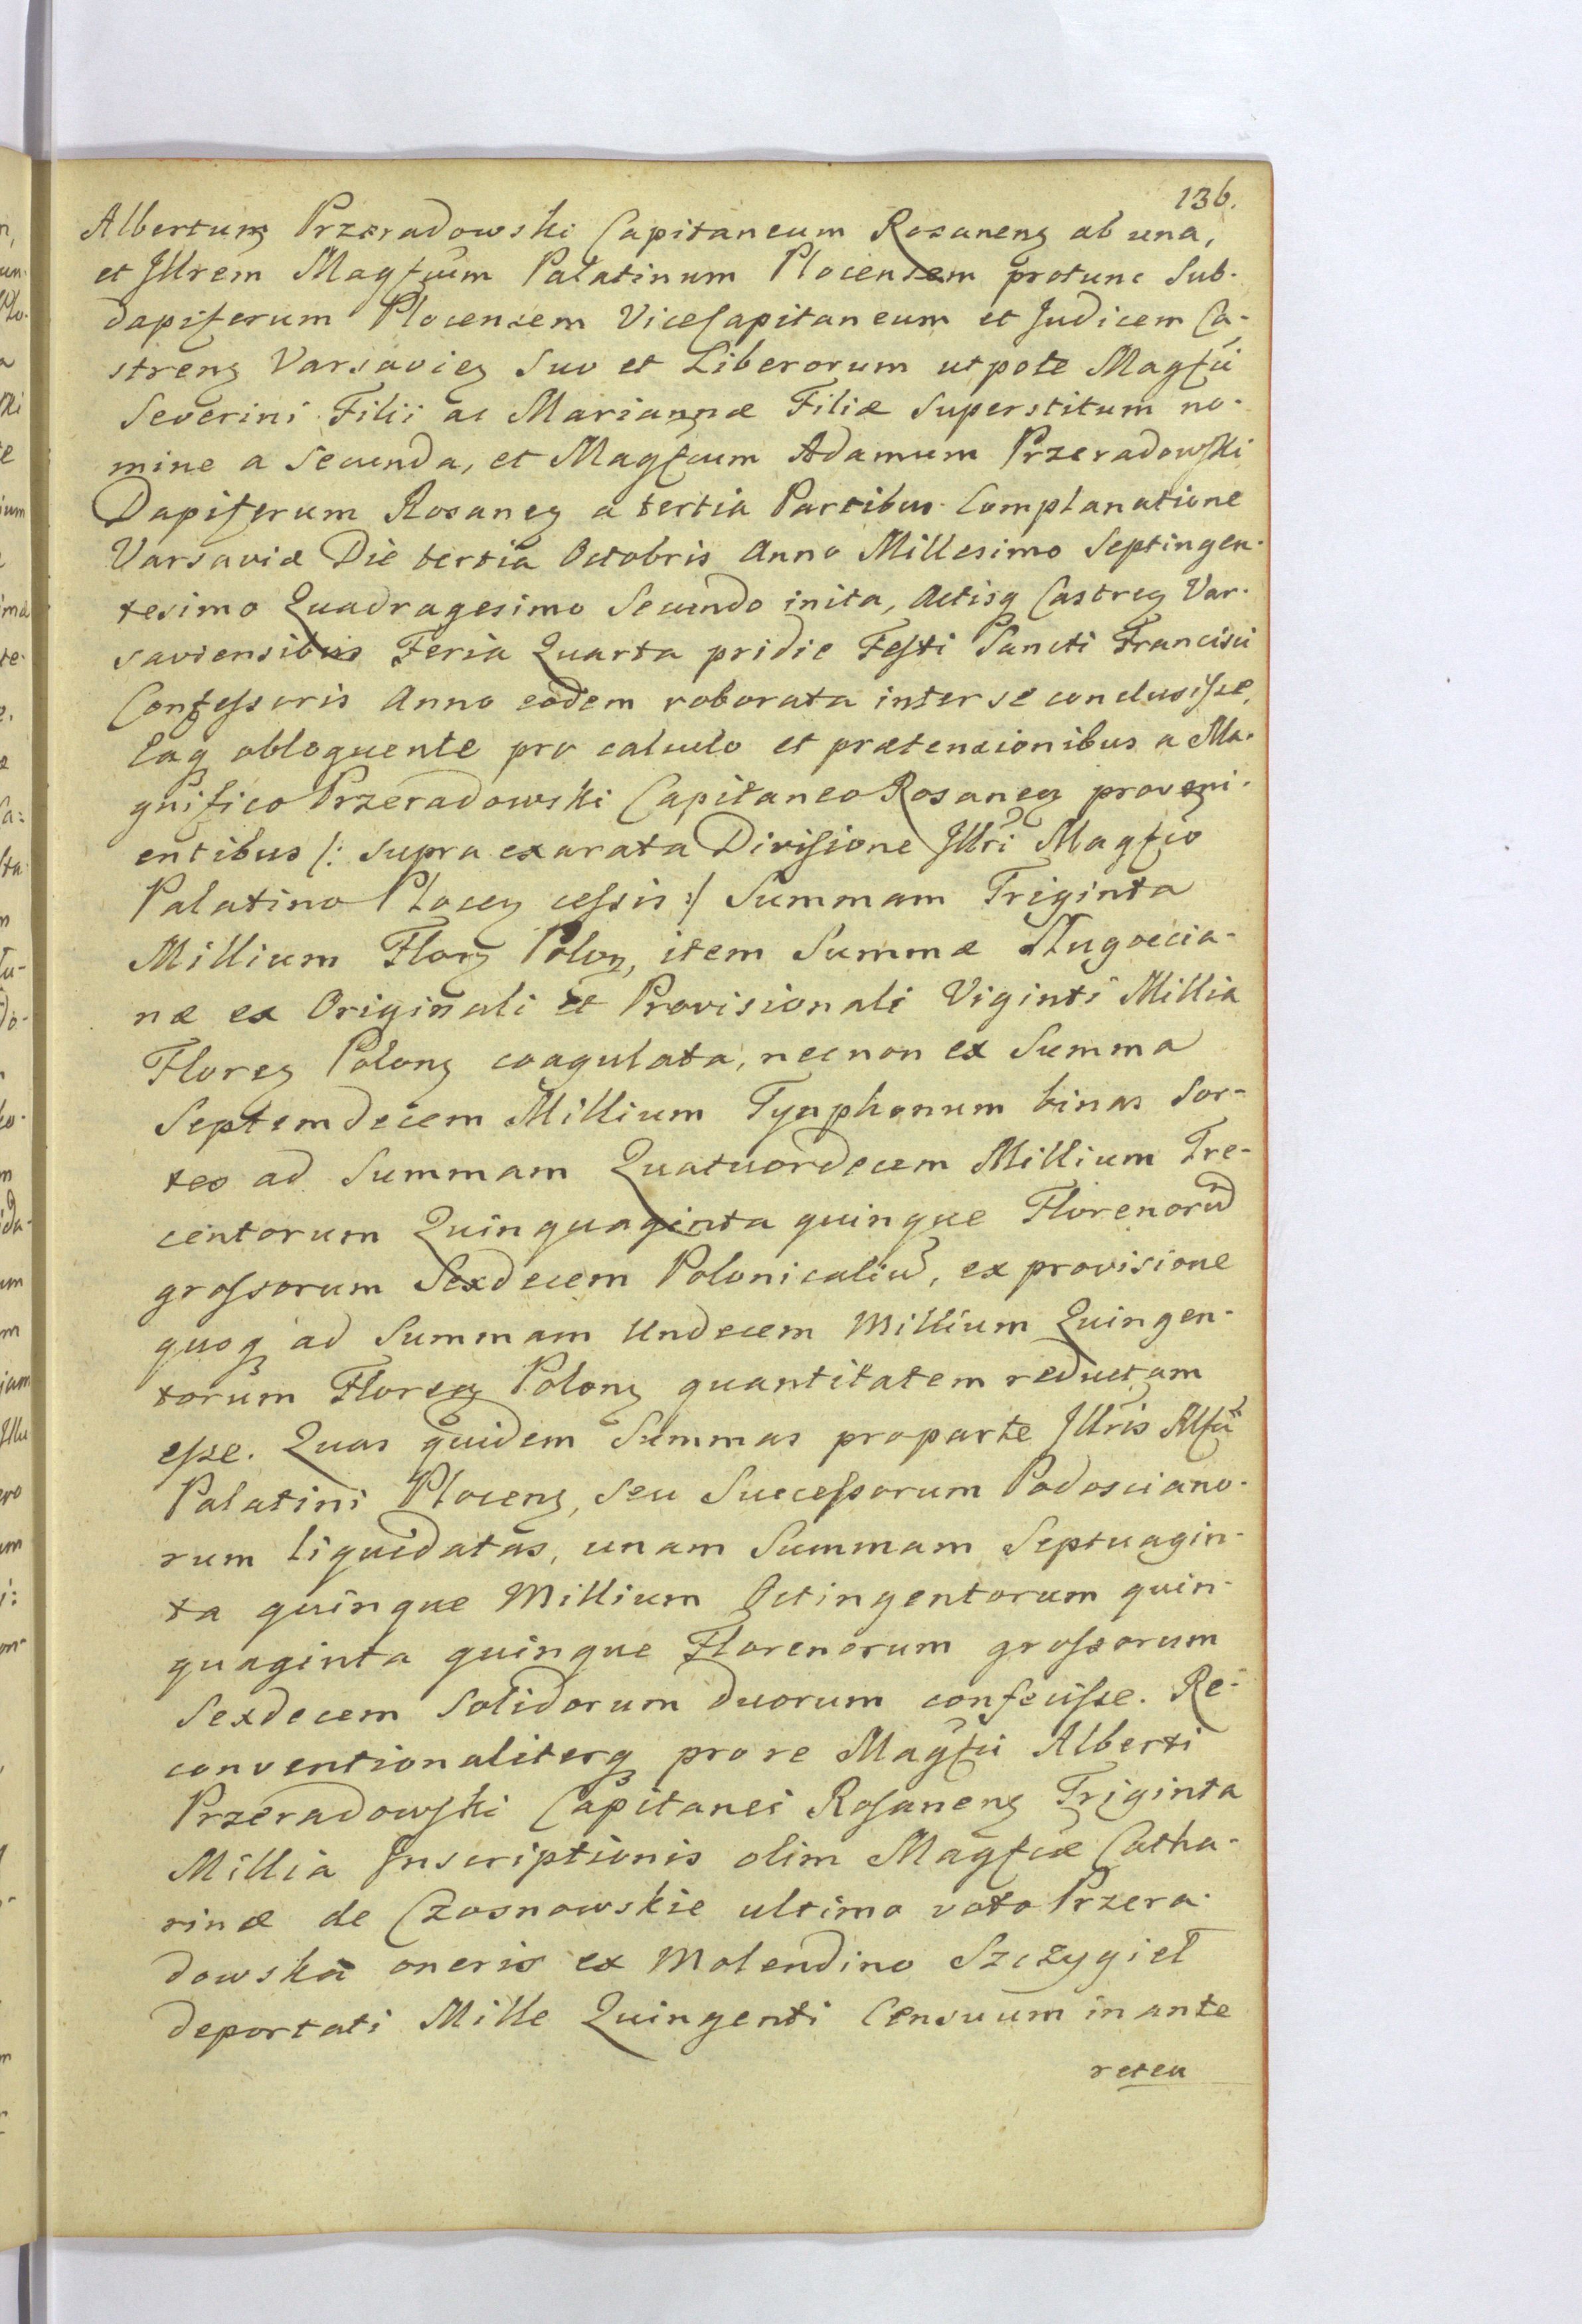 136.
Albertum Przeradowski Capitaneum Rosaneng ab una,
et Illrem Magfcum Palatinum Plocensem protunc Sub-
dapiferum Plocensem ViceCapitaneum et Judicem Ca-
streng Varsavieg Suo et Liberorum utpote Magfci
Severini Filii ac Mariannæ Filiæ Superstitum no-
mine a Secunda, et Magfcum Adamum Przeradowski
Dapiferum Rosaneg a tertia Partibus Complanatione
Varsaviæ Die tertia Octobris Anno Millesimo Septingen-
tesimo Quadragesimo Secundo inita, Actisq Castreg Var-
saviensibus Feria Quarta pridie Festi Sancti Francisci
Confessoris Anno eodem roborata inter se conclusisse,
Eaq obloquente pro calculo et prætensionibus a Ma-
gnifico Przeradowski Capitaneo Rosaneg proveni-
entibus /: supra exarata Divisione Illri Magfco
Palatino Ploceg cessis :/ Summam Triginta
Millium Flog Polog, item Summæ Dlugoecia-
næ ex Originali et Provisionali Viginti Millia
Floreg Polong coagulata, necnon ex Summa
Septemdecem Millium Tynphonum binas Sor-
tes ad Summam Quatuordecem Millium Tre-
centorum Quinquaginta quinque Florenorũ
grossorum Sexdecem Polonicaliũ, ex provisione
quoq ad Summam Undecem Millium Quingen-
torum Floreg Polong quantitatem reductam
esse. Quas quidem Summas proparte Illris Mfci
Palatini Ploceng, seu Successorum Podosciano-
rum liquidatas, unam Summam Septuagin-
ta quinque Millium Octingentorum quin-
quaginta quinque Florenorum grossorum
Sexdecem Solidorum duorum confecisse. Re-
conventionaliterq pro re Magfci Alberti
Przeradowski Capitanei Rosaneng Triginta
Millia Inscriptionis olim Magfcæ Catha-
rinæ de Czosnowskie ultimo voto Przera-
dowska oneris ex Molendino Szczygieł
deportati Mille Quingenti Censuum in ante
reten